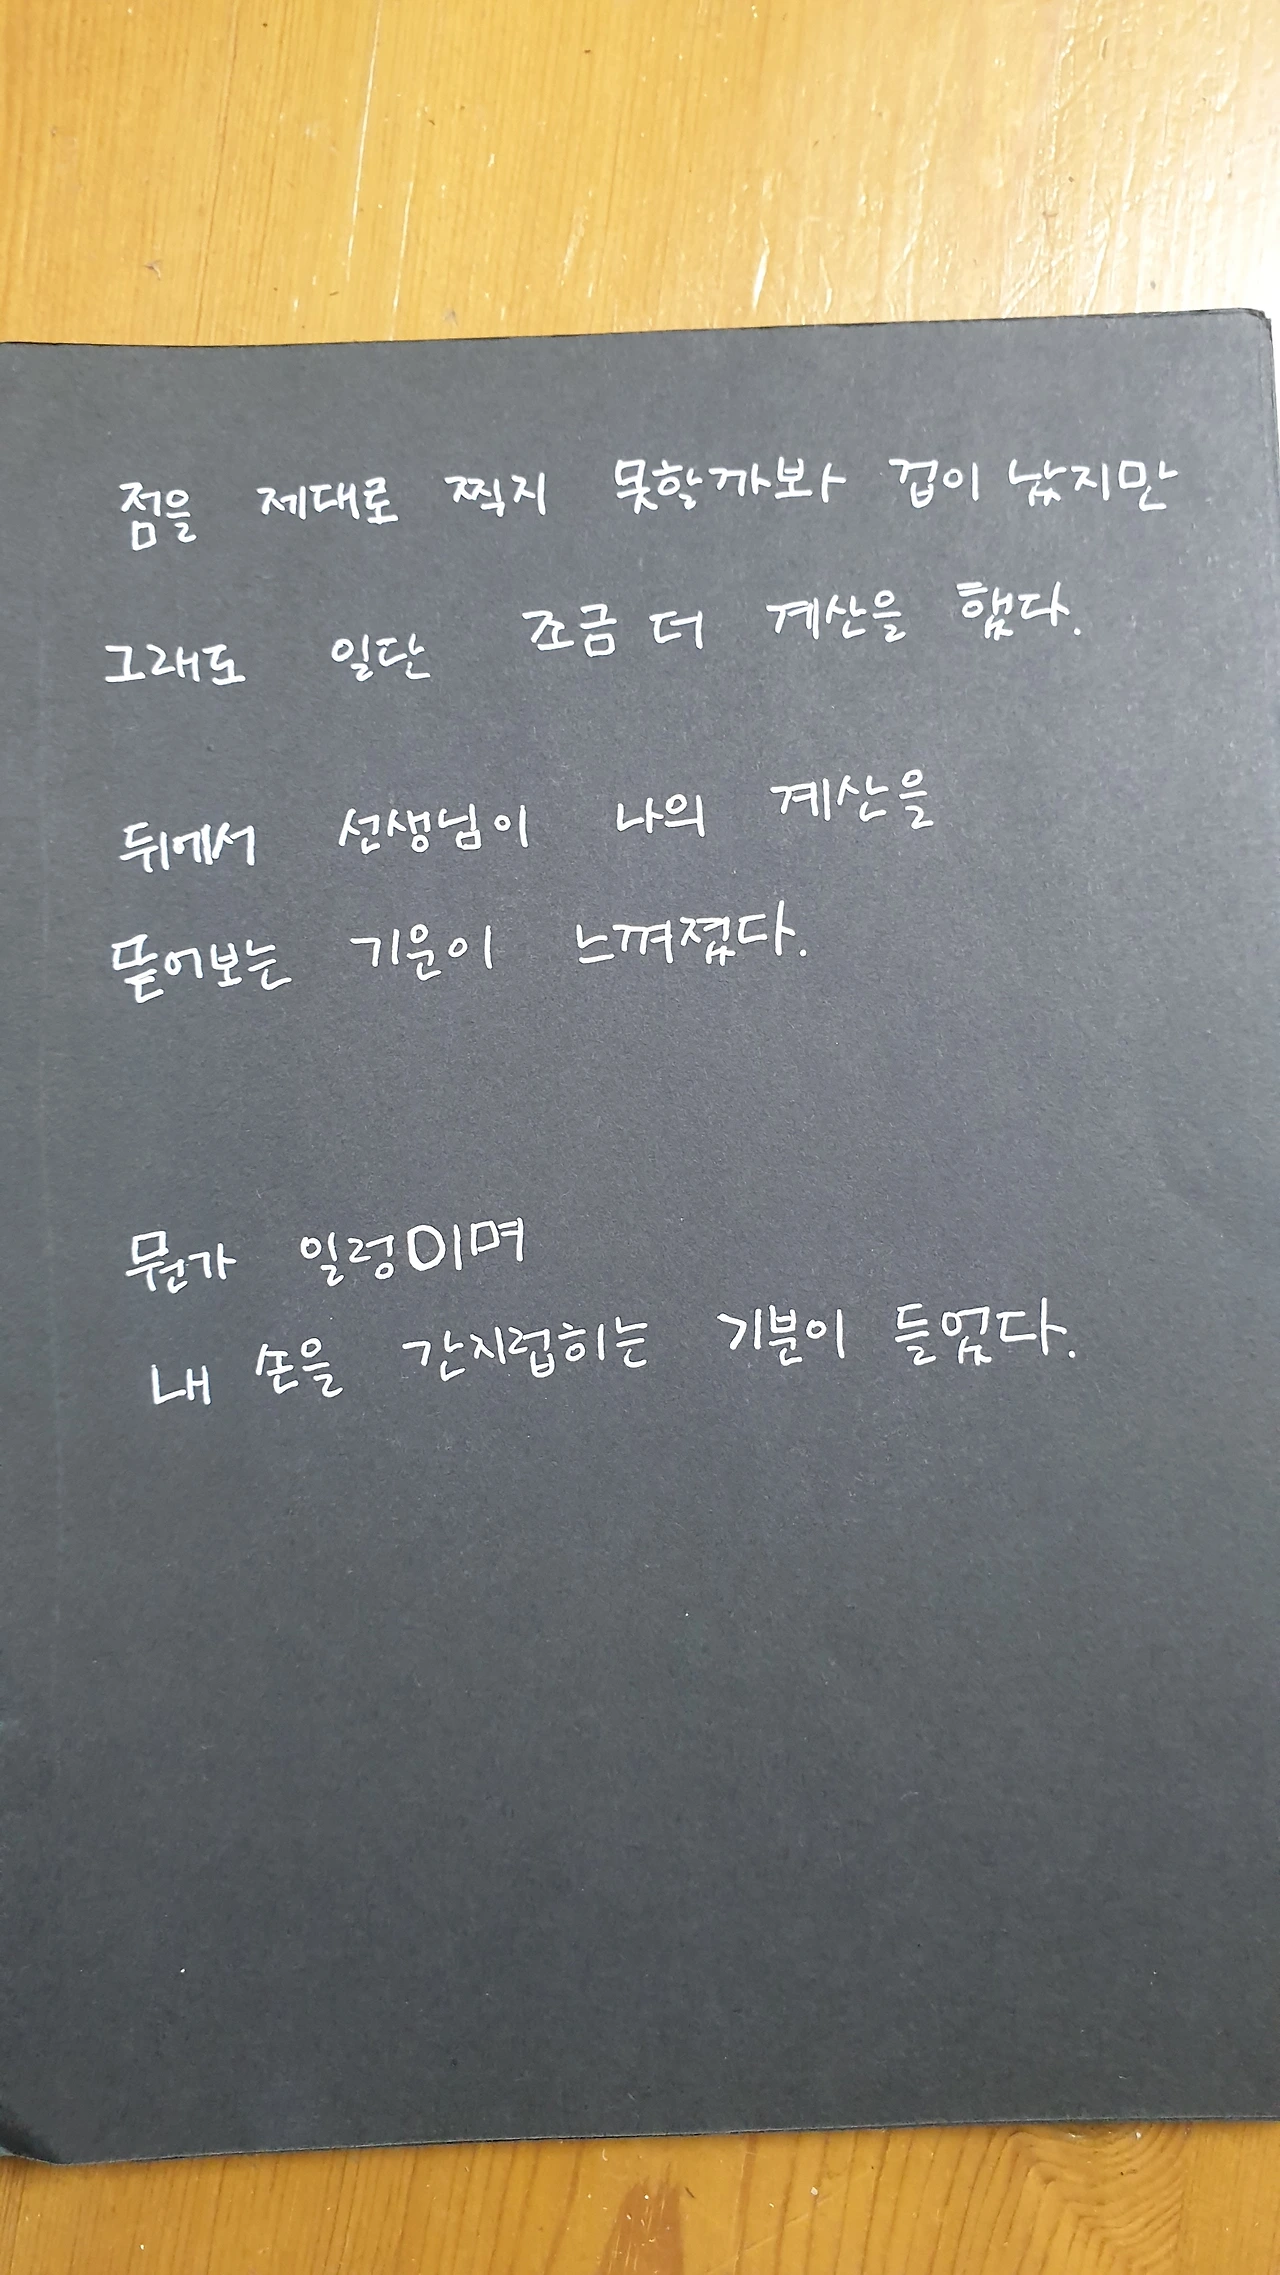 점을 제대로 찍지 못할까봐 겁이 났지만
그래도 일단 조금 더 계산을 했다.
뒤에서 선생님이 나의 계산을
뜯어보는 기운이 느껴졌다.
뭔가 일렁이며
내 손을 간지럽히는 기분이 들었다.